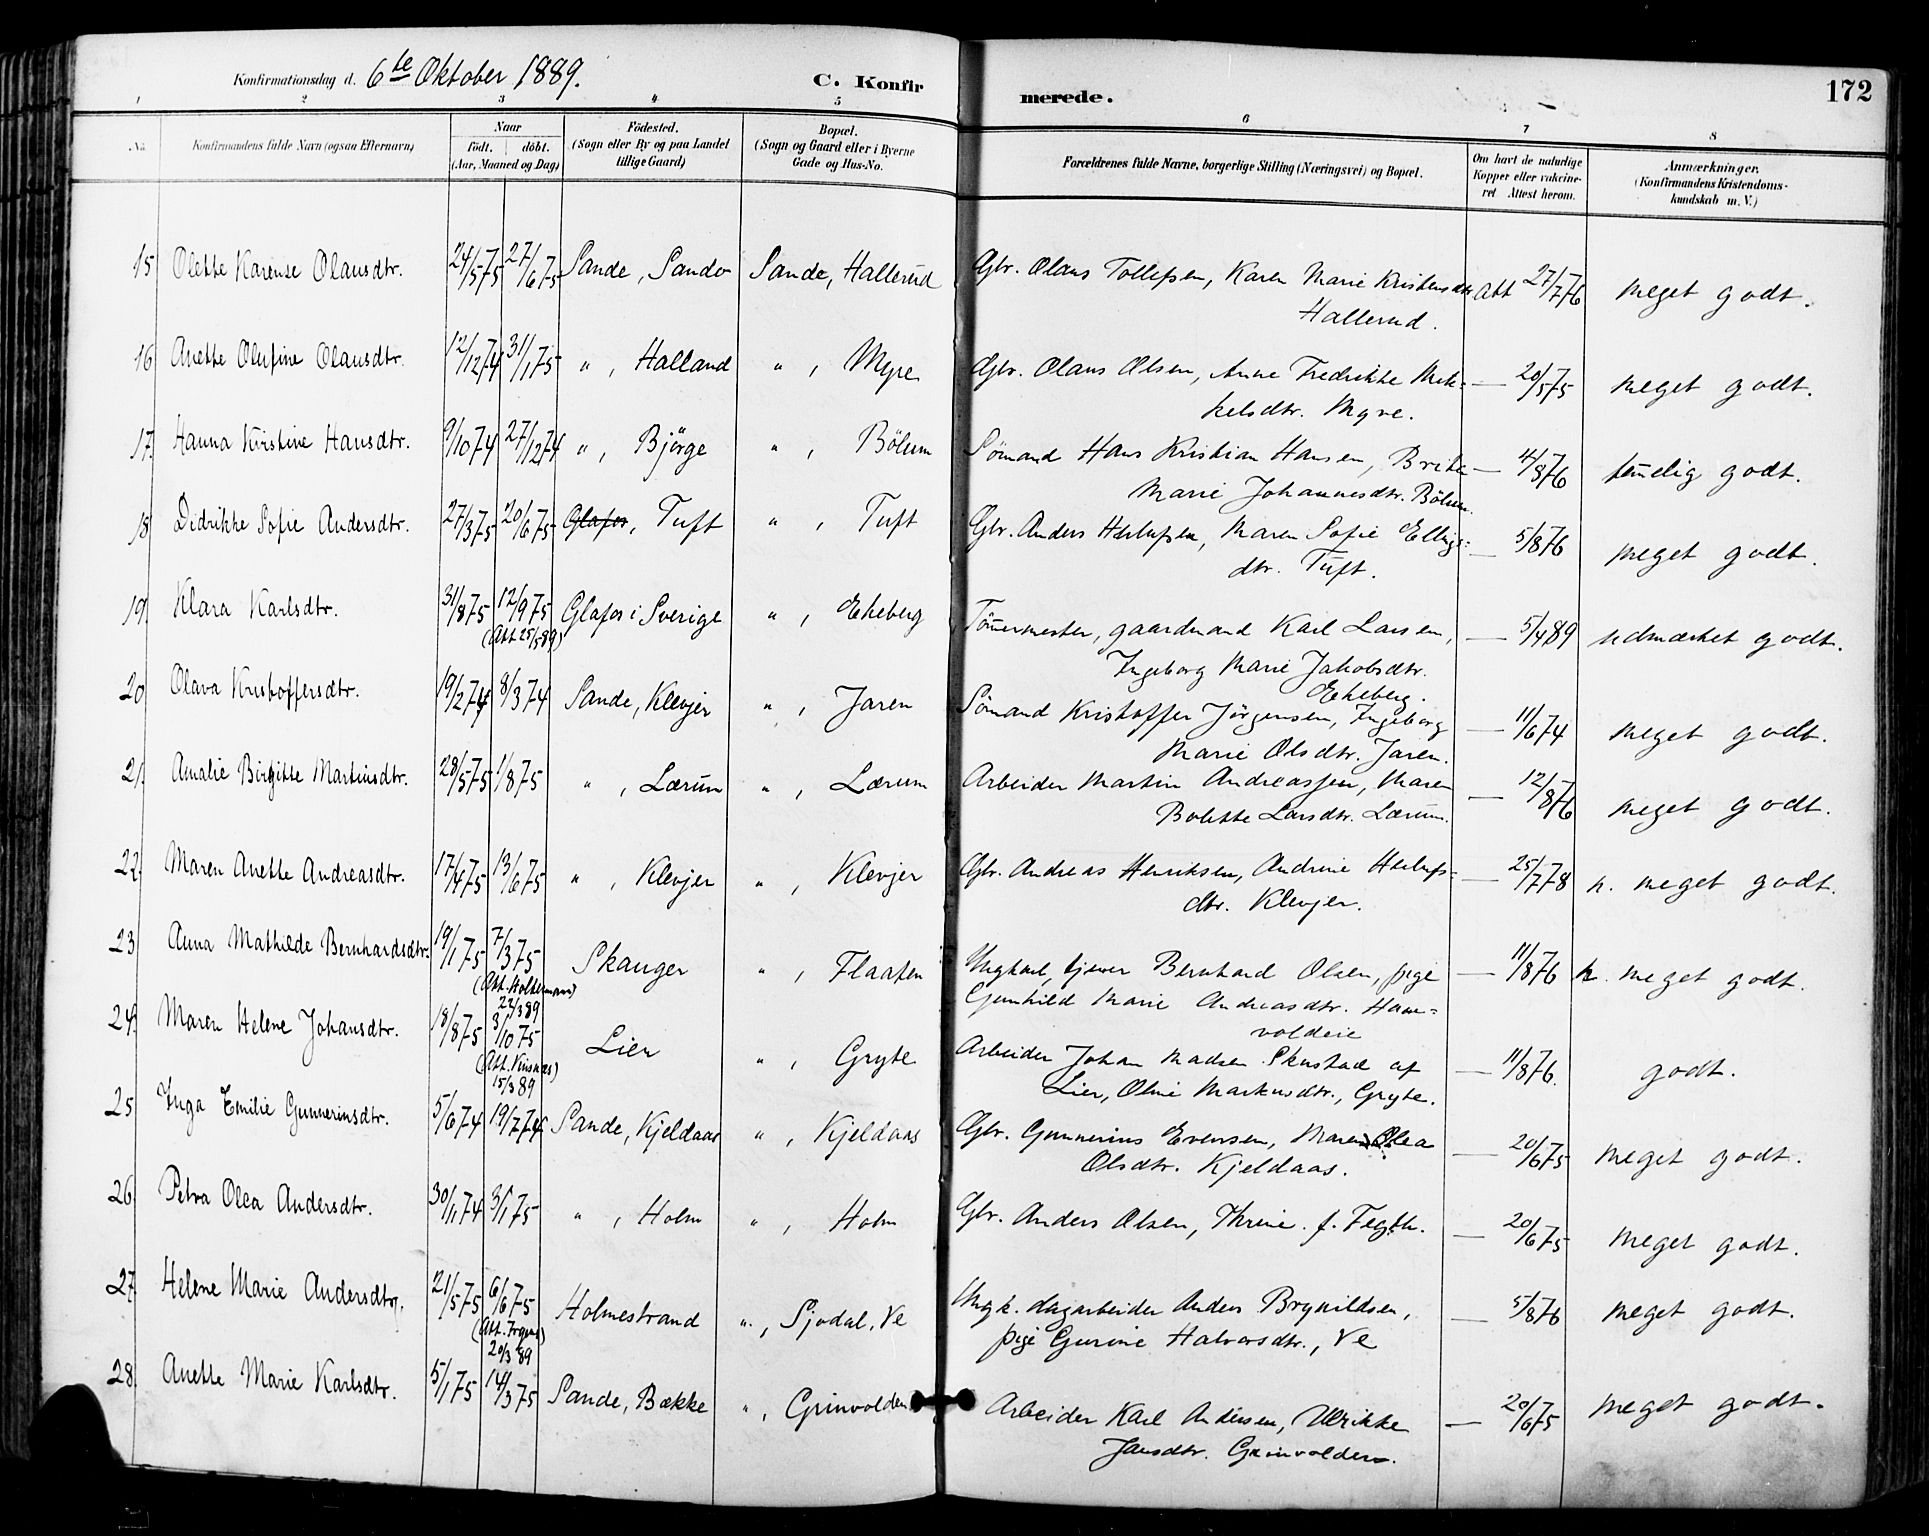 Konfirmationsdag d. 6te Oktober 1889. C. Konfirmerede. 172
1 2 3 4 5 6 7 8
No. Konfirmandens fulde Navn (ogsaa Efternavn) Naar födt. döbt. (Aar, Maaned og Dag) Födested. (Sogn eller By og paa Landet tillige Gaard) Bopæl. (Sogn og Gaard eller i Byerne Gade og Hus-No. Forældrenes fulde Navne, borgerlige Stilling (Næringsvei) og Bopæl. Om havt de naturlige Kopper eller vakcineret Attest herom. Anmærkninger. (Konfirmandens Kristendomskundskab m. V.)
15 Olette Karense Olausdtr. 24/5 75 27/6 75 Sande, Sande Sande, Hallerud Gbr. Olaus Tollefsen, Karen Marie Kristensdtr Hallerud. Att 27/7 76 meget godt.
16 Anette Olufine Olausdtr. 12/12 74 31/1 75 " , Halland " , Myre Gbr. Olaus Olsen, Anne Fredrikke Mikkelsdtr. Myre. — 20/5 75 meget godt.
17. Hanna Kristine Hansdtr. 9/10 74 27/12 74 " , Björge " , Bölum Sömand Hans Kristian Hansen, Brite Marie Johannesdtr. Bölum. — 4/8 76 temelig godt.
18 Didrikke Sofie Andersdtr. 27/3 75 20/6 75 Glafos, Tuft " , Tuft Gbr. Anders Herlufsen, Maren Sofie Ellingsdtr. Tuft. — 5/8 76 meget godt.
19. Klara Karlsdtr. 31/8 75 12/9 75 (Att 25/5 89) Glafos i Sverige " , Ekeberg Tömermester, gaardmand Karl Larsen, Ingeborg Marie Jakobsdtr. Ekeberg. — 5/4 89 udmærket godt.
20 Olava Kristoffersdtr. 19/2 74 8/3 74 Sande, Klevjer " , Jaren Sömand Kristoffer Jörgensen, Ingeborg Marie Olsdtr. Jaren. — 11/6 74 meget godt.
21. Amalie Birgitte Martinsdtr. 28/5 75 1/8 75 " , Lærum " , Lærum Arbeider Martin Andreassen, Maren Bolette Larsdtr. Lærum. — 12/8 76 meget godt.
22. Maren Anette Andreasdtr. 17/4 75 13/6 75 " , Klevjer " , Klevjer Gbr. Andreas Henriksen, Andrine Herlufsdtr. Klevjer. — 25/7 78 n. meget godt.
23 Anna Mathilde Bernhardsdtr. 19/1 75 7/3 75 (Att. Holtermann) 22/3 89 Skauger " , Flaaten Ungkarl, tjener Bernhard Olsen, pige Gunhild Marie Andreasdtr. — 11/8 76 n. meget godt.
24. Maren Helene Johansdtr. 18/8 75 3/10 75 15/3 89 Lier " , Gryte Arbeider Johan Madsen Skustad af Lier, Oline Markusdtr., Gryte. — 11/8 76. godt.
25 Inga Emilie Gunnerinsdtr. 5/6 74 19/7 74 Sande, Kjeldaas " , Kjeldaas Gbr. Gunnerius Evensen, Maren Olea Olsdtr. Kjeldaas. — 20/6 75 meget godt.
26 Petra Olea Andersdtr. 30/11 74 3/1 75 " , Holm " , Holm Gbr. Anders Olsen, Thrine f. Fegth. — 20/6 75 meget godt.
27. Helene Marie Andersdtr. 21/5 75 6/6 75 20/3 89 Holmestrand " , Sjodal, Ve Ungk. dagarbeider Anders Brynildsen, pige Gurine Halvorsdtr., Ve — 5/8 76 meget godt.
28. Anette Marie Karlsdtr. 5/1 75 14/3 75 Sande, Bække " , Grinvolden Arbeider Karl Andersen, Ulrikke Jansdtr. Grinvolden. — 20/6 75 meget godt.